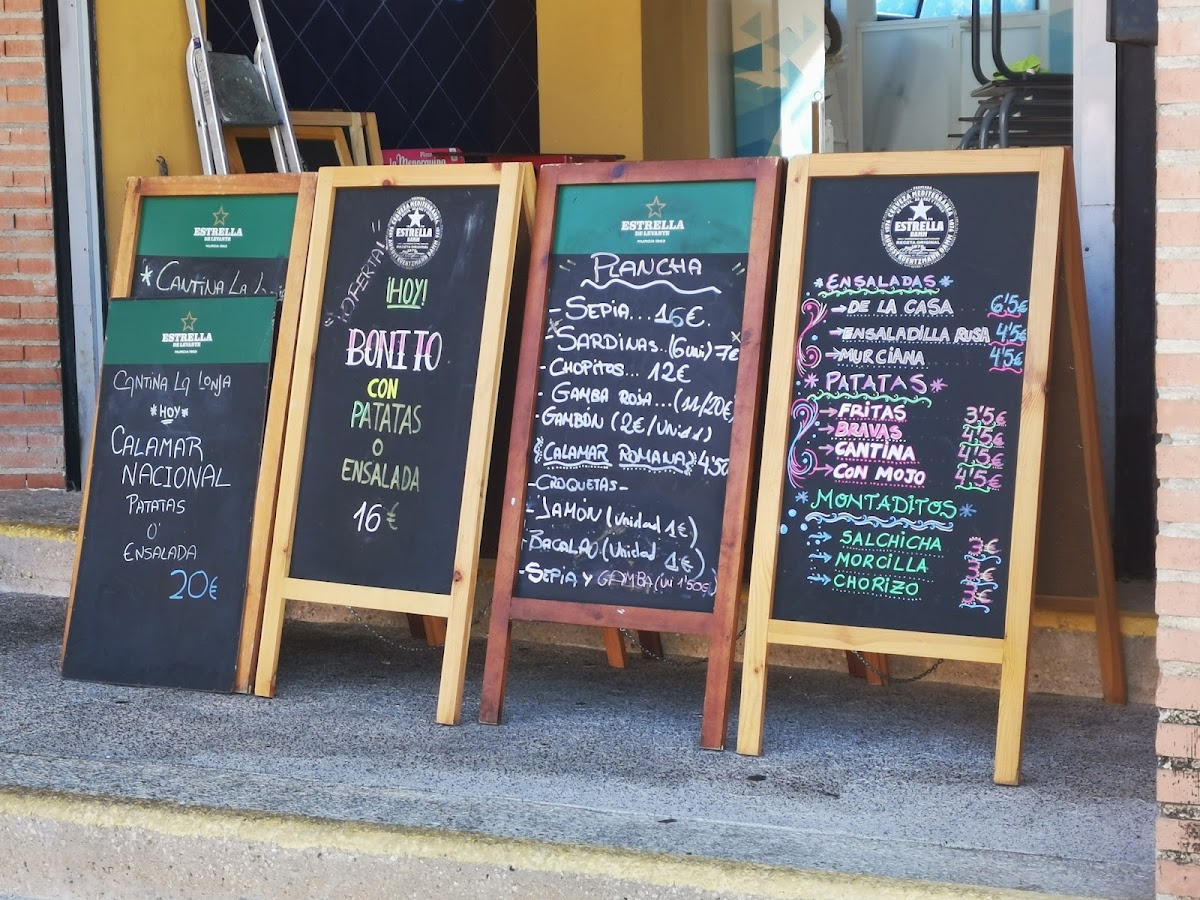 ESTRELLA
DE LEVANTE
MURCIA 1963
CANTINA LA
ESTRELLA
DE LEVANTE
MURCIA 1963
CANTINA LA LONJA
*HOY*
CALAMAR
NACIONAL
PATATAS
O'
ENSALADA
20€
ESTRELLA
DAMM
¡OFERTA!
¡HOY!
BONITO
CON
PATATAS
O
ENSALADA
16€
ESTRELLA
DE LEVANTE
MURCIA 1963
PLANCHA
- SEPIA... 16€.
- SARDINAS..(6 uni) 7€
- CHOPITOS... 12€
- GAMBA ROJA...(11/20€)
- GAMBÓN (2€/Unid1)
CALAMAR ROMANA 4'50
- CROQUETAS -
- JAMÓN (Unidad 1€)
- BACALAO (Unidad 1€)
- SEPIA Y GAMBA (Uni 1'50€)
CERVEZA MEDITERRÁNEA
ESTRELLA
DAMM
RECETA ORIGINAL
1876
*ENSALADAS*
→DE LA CASA 6'5€
→ENSALADILLA RUSA 4'5€
→MURCIANA 4'5€
*PATATAS*
→FRITAS 3'5€
→BRAVAS 4'5€
→CANTINA 4'5€
→CON MOJO 4'5€
*MONTADITOS*
→SALCHICHA 3€
→MORCILLA 3€
→CHORIZO 3€